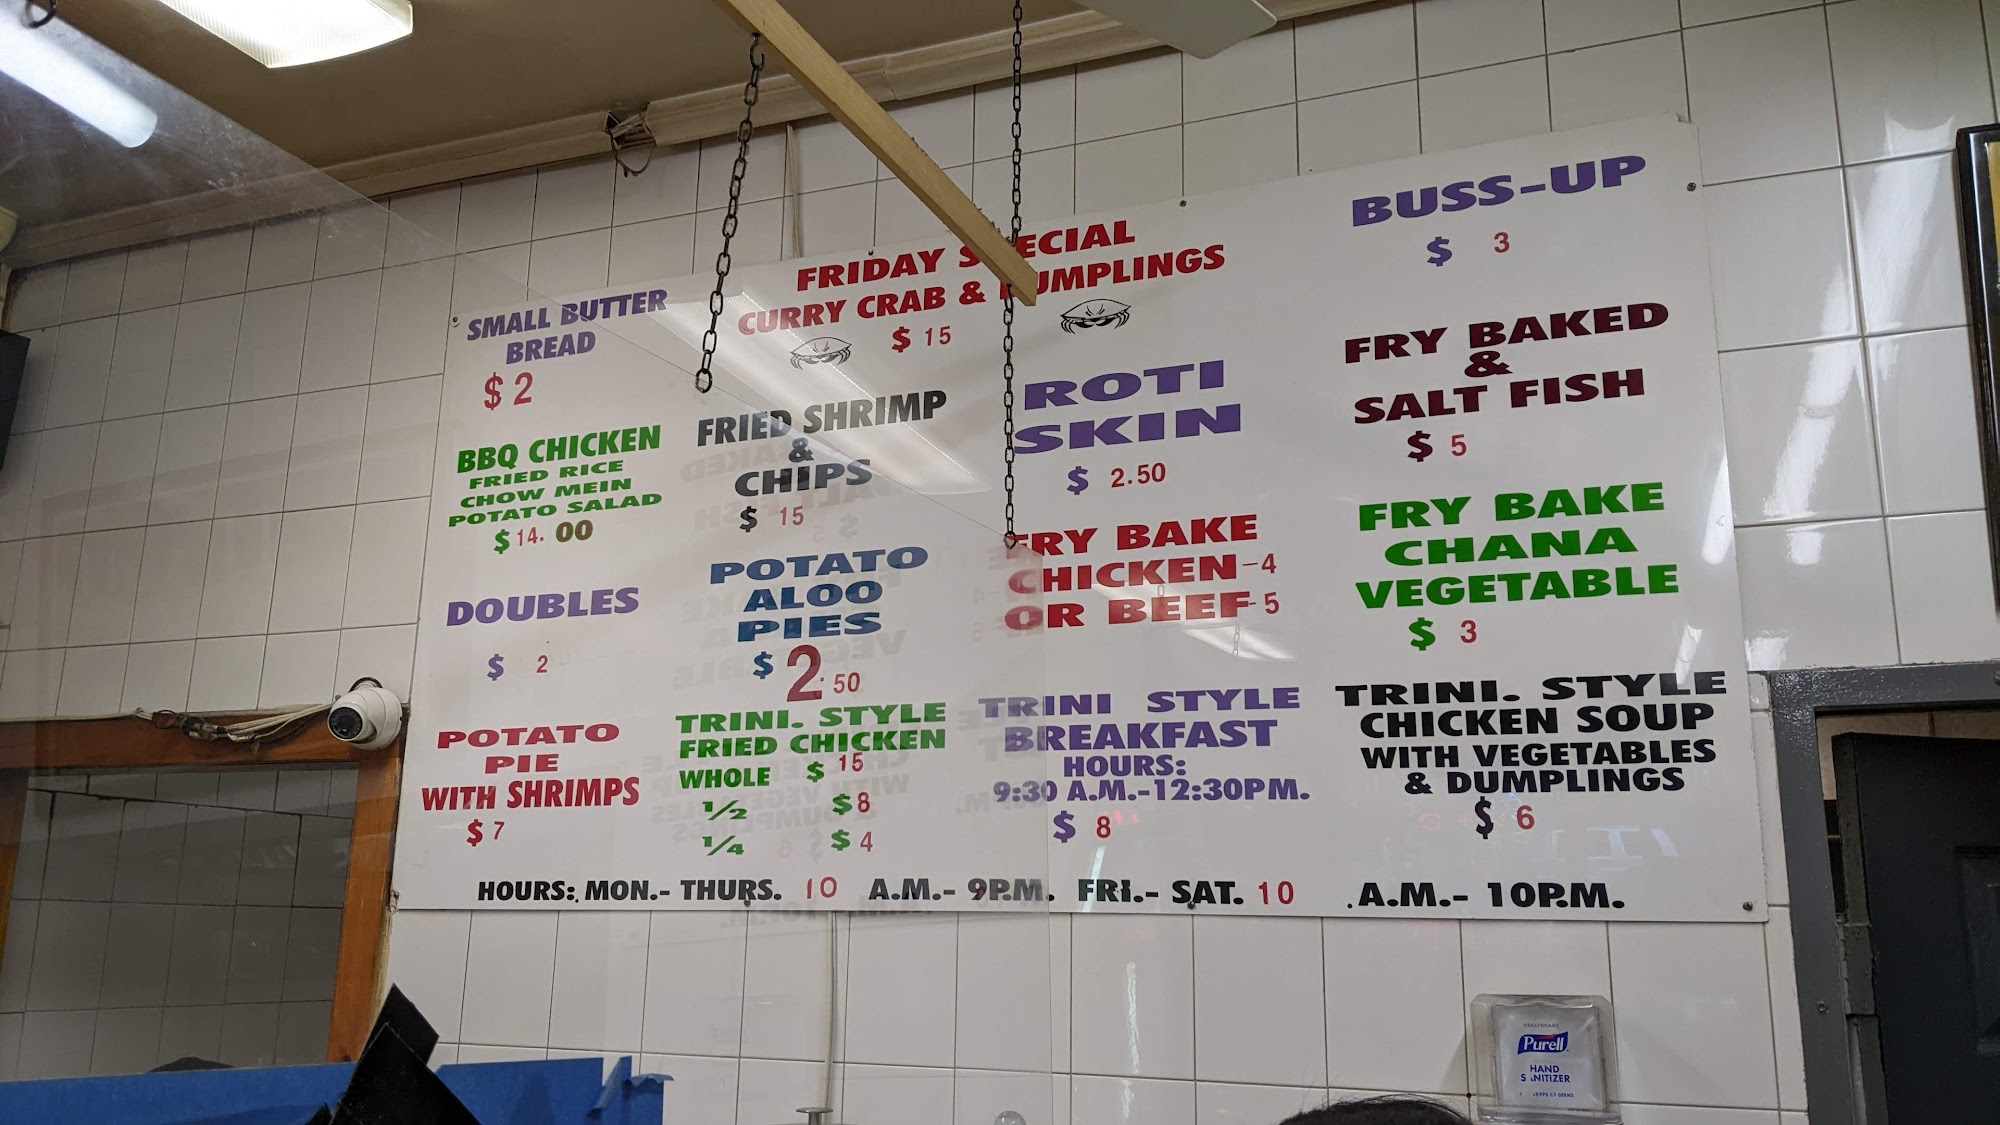 SMALL BUTTER
BREAD
$ 2
BBQ CHICKEN
FRIED RICE
CHOW MEIN
POTATO SALAD
$ 14. 00
DOUBLES
$ 2
POTATO
PIE
WITH SHRIMPS
$ 7
FRIDAY SPECIAL
CURRY CRAB & DUMPLINGS
$ 15
FRIED SHRIMP
&
CHIPS
$ 15
POTATO
ALOO
PIES
$ 2.50
TRINI. STYLE
FRIED CHICKEN
WHOLE $ 15
1/2 $ 8
1/4 $ 4
ROTI
SKIN
$ 2.50
FRY BAKE
CHICKEN-4
OR BEEF-5
TRINI STYLE
BREAKFAST
HOURS:
9:30 A.M.-12:30P.M.
$ 8
BUSS-UP
$ 3
FRY BAKED
&
SALT FISH
$ 5
FRY BAKE
CHANA
VEGETABLE
$ 3
TRINI. STYLE
CHICKEN SOUP
WITH VEGETABLES
& DUMPLINGS
$ 6
HOURS: MON.- THURS. 10 A.M.- 9P.M. FRI.- SAT. 10 A.M.- 10P.M.
HEALTHCARE
Purell
HAND
SANITIZER